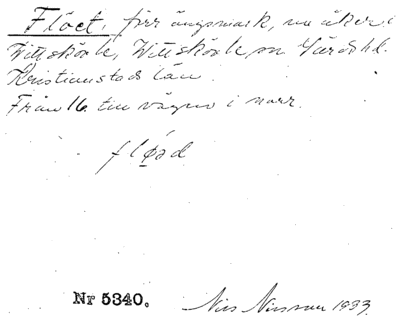 Flöet, förr ängsmark, nu åker i
Vittskövle, Vittskövle sn Gärds hd.
Kristianstads län.
Från 16 till vägen i norr.
fløəd
Nr 5340.
Nils Nilsson 1933.